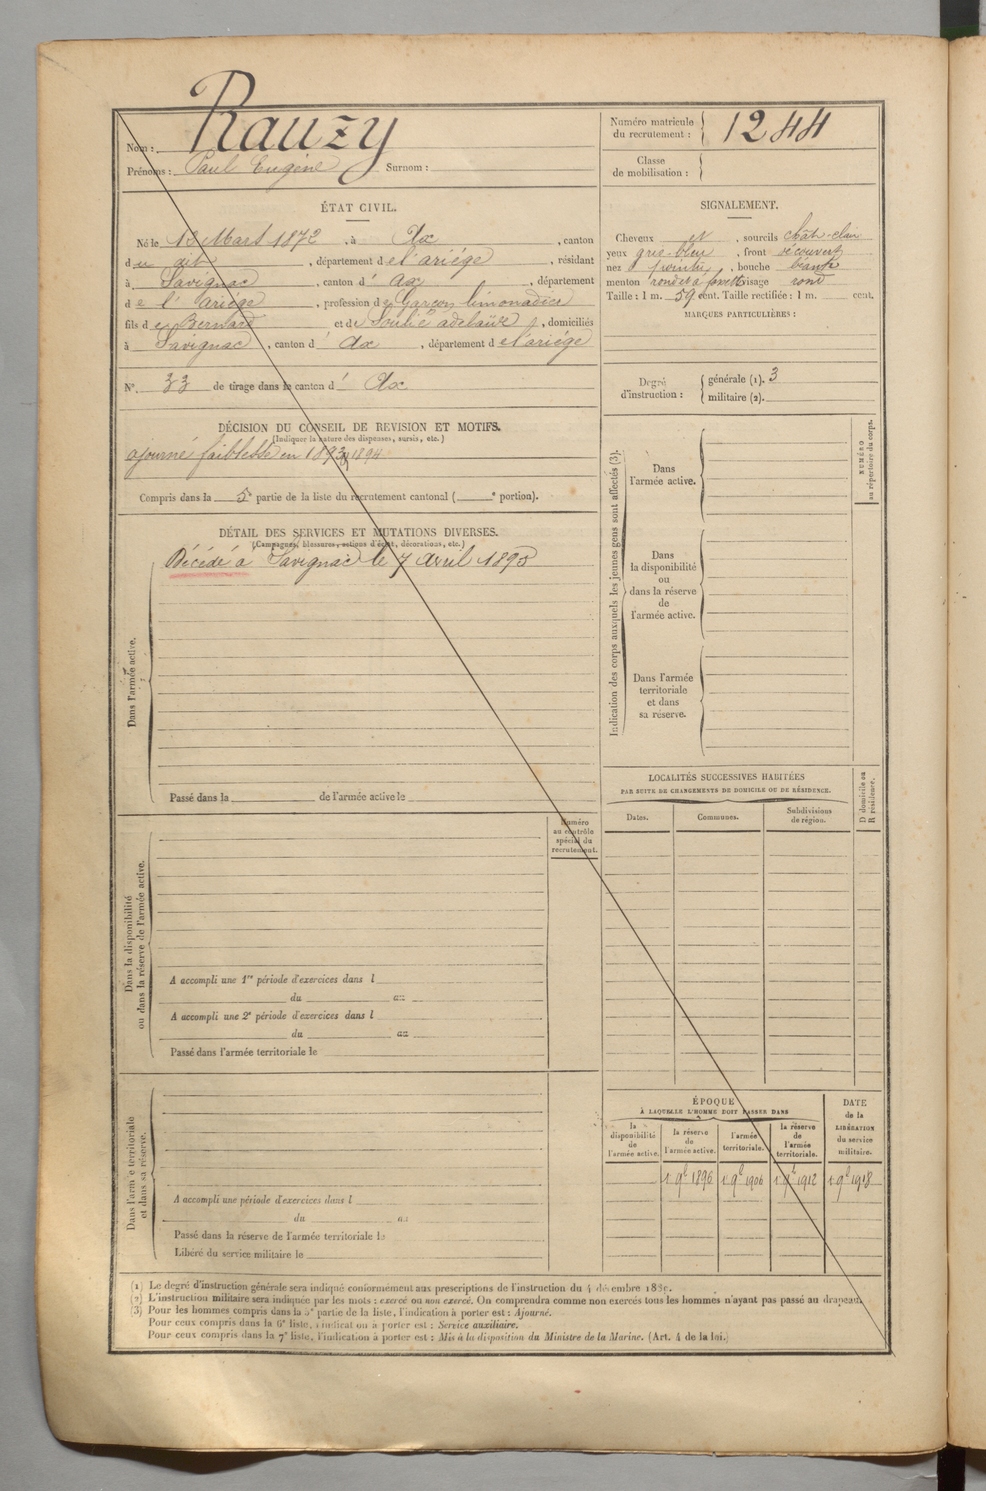 Nom : Rauzy
Prénoms : Paul Eugène Surnom :
Numéro matricule du recrutement : 1244
Classe de mobilisation :
ÉTAT CIVIL.
Né le 13 Mars 1872, à Ax, canton
du dit, département de l'ariège, résidant
à Savignac, canton d' ax, département
de l' ariège, profession de Garçon limonadier
fils de Bernard et de Soulié adelaïde, domiciliés
à Savignac, canton d' Ax, département de l'ariège
N° 33 de tirage dans le canton d' Ax
DÉCISION DU CONSEIL DE REVISION ET MOTIFS.
(Indiquer la nature des dispenses, sursis, etc.)
ajourné faiblesse en 1893, 1894
Compris dans la 5e partie de la liste du recrutement cantonal ( e portion).
DÉTAIL DES SERVICES ET MUTATIONS DIVERSES.
(Campagnes, blessures, actions d'éclat, décorations, etc.)
Décédé à Savignac le 7 avril 1895
Dans l'armée active.
Passé dans la de l'armée active le
Numéro au contrôle spécial du recrutement.
Dans la disponibilité ou dans la réserve de l'armée active.
A accompli une 1re période d'exercices dans l
du au
A accompli une 2e période d'exercices dans l
du au
Passé dans l'armée territoriale le
Dans l'armée territoriale et dans sa réserve.
A accompli une période d'exercices dans l
du au
Passé dans la réserve de l'armée territoriale le
Libéré du service militaire le
SIGNALEMENT.
Cheveux et, sourcils chât-clair
yeux gris-bleu, front découvert
nez pointu, bouche
menton rond et à fossette visage rond
Taille : 1 m. 59 cent. Taille rectifiée : 1 m. cent.
MARQUES PARTICULIÈRES :
Degré d'instruction :
générale (1). 3
militaire (2).
Indication des corps auxquels les jeunes gens sont affectés (3).
NUMÉRO au répertoire du corps.
Dans l'armée active.
Dans la disponibilité ou dans la réserve de l'armée active.
Dans l'armée territoriale et dans sa réserve.
LOCALITÉS SUCCESSIVES HABITÉES
PAR SUITE DE CHANGEMENTS DE DOMICILE OU DE RÉSIDENCE.
D domicile ou R résidence.
Dates. Communes. Subdivisions de région.
ÉPOQUE
À LAQUELLE L'HOMME DOIT PASSER DANS
DATE de la LIBÉRATION du service militaire.
la disponibilité de l'armée active. la réserve de l'armée active. l'armée territoriale. la réserve de l'armée territoriale.
1 9bre 1896 1 9bre 1906 1 9bre 1912 1 9bre 1918
(1) Le degré d'instruction générale sera indiqué conformément aux prescriptions de l'instruction du 4 décembre
(2) L'instruction militaire sera indiquée par les mots : exercé ou non exercé. On comprendra comme non exercés tous les hommes n'ayant pas passé au drapeau.
(3) Pour les hommes compris dans la 5e partie de la liste, l'indication à porter est : Ajourné.
Pour ceux compris dans la 6e liste, l'indication à porter est : Service auxiliaire.
Pour ceux compris dans la 7e liste, l'indication à porter est : Mis à la disposition du Ministre de la Marine. (Art. 4 de la loi.)